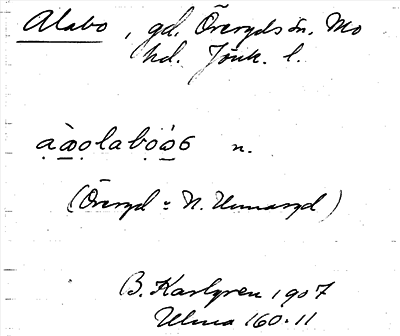 Alabo, gd. Öreryds sn. Mo
hd. Jönk. l.
n.
(Öreryd = N. Unnaryd)
B. Karlgren 1907
Ulma 160:11